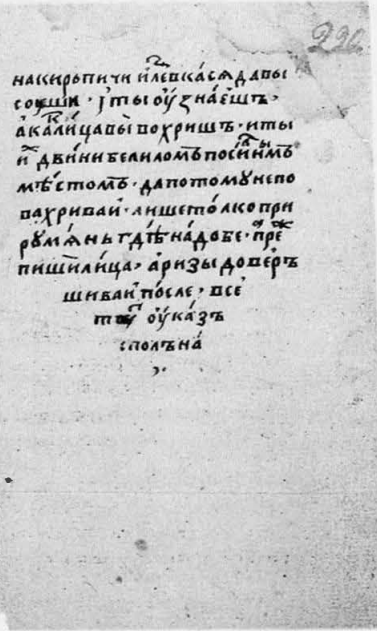 226
на кирьпичи и левкася дабы
сошли · и ты оузнаешъ ·
а кали лица выпохришъ · и ты
и двини белиломъ по синимъ
местомъ · да потому непо
вахривай · лише толко при
румянь гдѣ надобе · преже
пиши лица, а ризы доверъ
шиваи после · все
ту оуказъ
сполъна